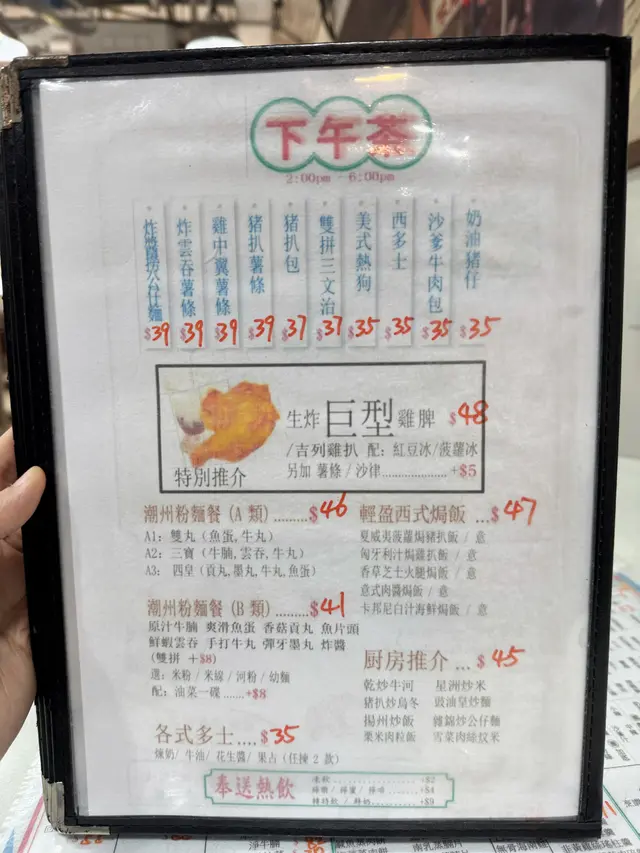 下午茶
2:00pm - 6:00pm
奶油豬仔 $35
沙爹牛肉包 $35
西多士 $35
美式熱狗 $35
雙拼三文治 $37
豬扒包 $37
豬扒薯條 $39
雞中翼薯條 $39
炸雲吞薯條 $39
炸醬撈公仔麵 $39
生炸巨型雞脾 $48
/吉列雞扒 配: 紅豆冰/菠蘿冰
另加 薯條 / 沙律...................+$5
特別推介
潮州粉麵餐 (A 類) .........$46
A1: 雙丸 (魚蛋,牛丸)
A2: 三寶 (牛腩,雲吞,牛丸)
A3: 四皇 (貢丸,墨丸,牛丸,魚蛋)
潮州粉麵餐 (B 類) .........$41
原汁牛腩 爽滑魚蛋 香菇貢丸 魚片頭
鮮蝦雲吞 手打牛丸 彈牙墨丸 炸醬
(雙拼 +$8)
選: 米粉 / 米線 / 河粉 / 幼麵
配: 油菜一碟 ......+$8
各式多士....$35
煉奶/ 牛油/ 花生醬/ 果占 (任揀 2 款)
輕盈西式焗飯 ...$47
夏威夷菠蘿焗豬扒飯 / 意
匈牙利汁焗雞扒飯 / 意
香草芝士火腿焗飯 / 意
意式肉醬焗飯 / 意
卡邦尼白汁海鮮焗飯 / 意
厨房推介 ... $45
乾炒牛河 星洲炒米
豬扒炒烏冬 豉油皇炒麵
揚州炒飯 雜錦炒公仔麵
粟米肉粒飯 雪菜肉絲炆米
奉送熱飲
凍飲 +$2
+$4
+$9